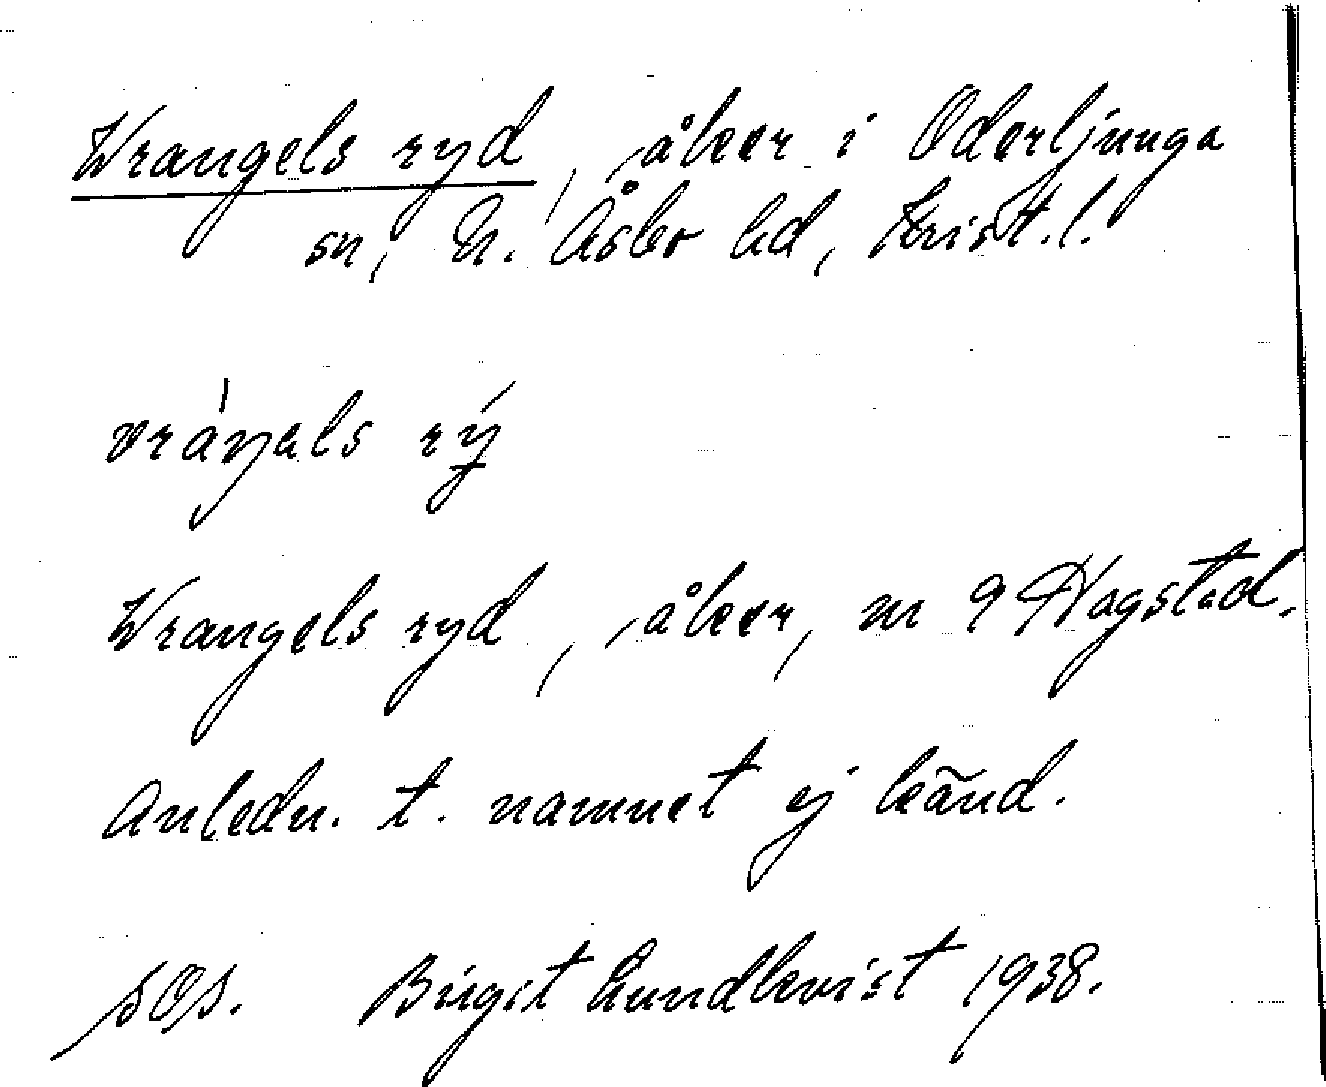 Wrangels ryd, åker i Oderljunga
sn, N. Åsbo hd, Krist. l.
vráŋals rý
Wrangels ryd, åker, nr 9 Hagstad.
Anledn. t. namnet ej känd.
SOS. Birgit Lundkvist 1938.